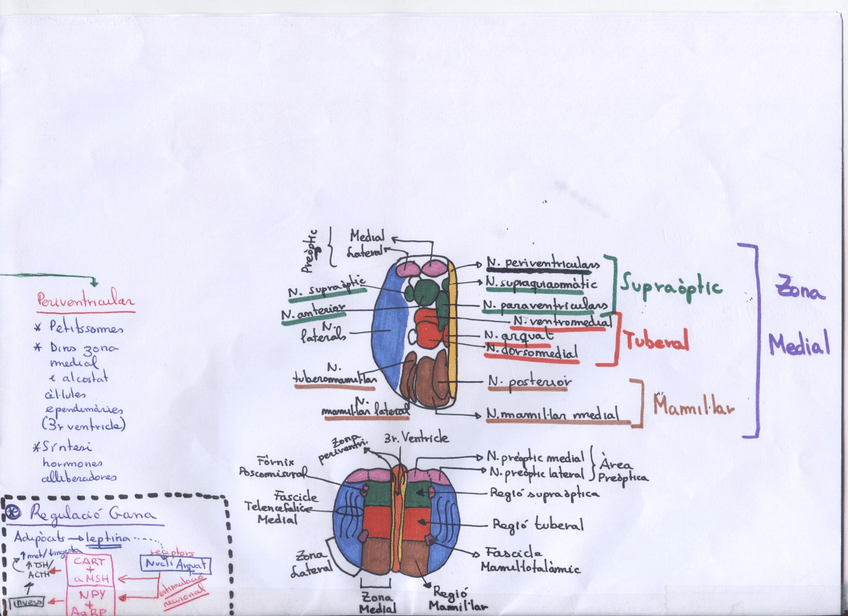 Periventricular
* Petitíssomes
* Dins zona
medial
i alcostat
cèl·lules
ependimàries
(3r ventricle)
* Síntesi
hormones
alliberadores
* Regulació Gana
Adipòcits → leptina
receptors
Nucli Arquat
↑ TSH/
ACTH
CART
+
αMSH
estimulació
neuronal
invers
NPY
+
AgRP
Preòptic
Medial
Lateral
N. supraòptic
N. anterior
N.
laterals
N.
tuberomamil·lar
N.
mamil·lar lateral
N. periventriculars
N. supraquiasmàtic
N. paraventriculars
N. ventromedial
N. arquat
N. dorsomedial
N. posterior
N. mamil·lar medial
Supraòptic
Tuberal
Mamil·lar
Zona
Medial
Zona
periventri.
3r. Ventricle
Fòrnix
Poscomisural
Fascicle
Telencefàlic
Medial
Zona
Lateral
Zona
Medial
N. preòptic medial
N. preòptic lateral
Àrea
Preòptica
Regió supraòptica
Regió tuberal
Fascicle
Mamil·lotalàmic
Regió
Mamil·lar